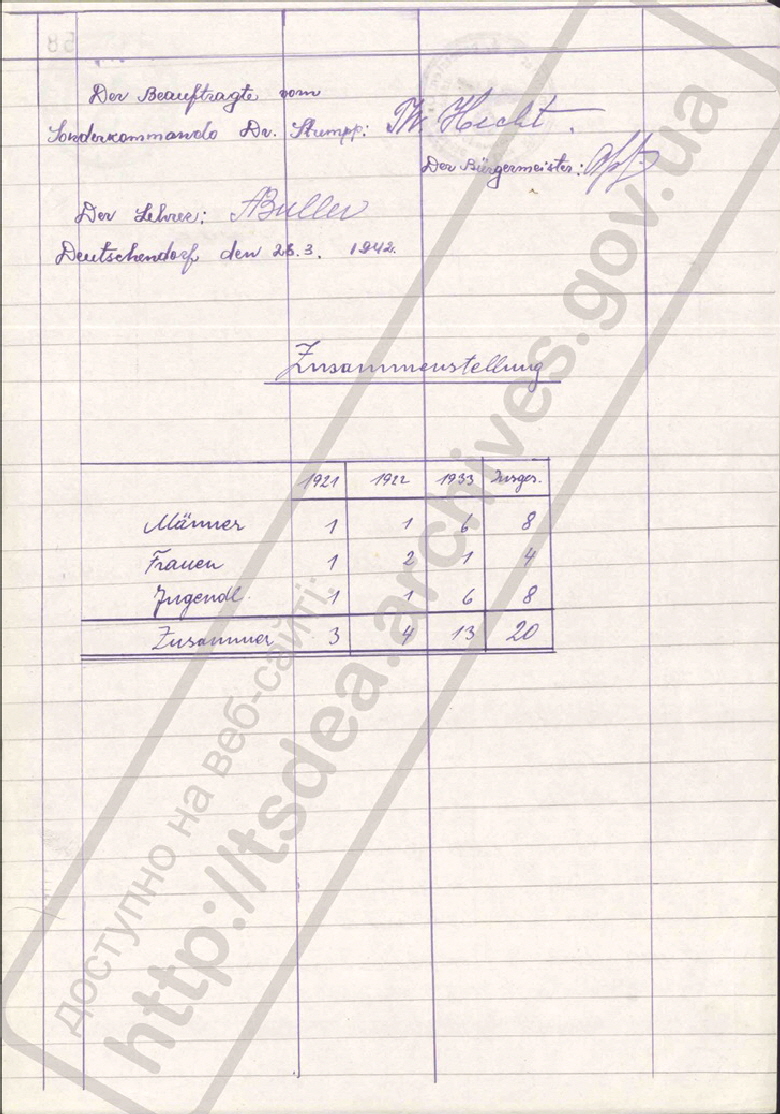 Der Beauftragte vom
Sonderkommando Dr. Stumpp: Th. Hecht.
Der Bürgermeister:
Der Lehrer: ABuller
Deutschendorf den 28.3. 1942.
Zusammenstellung
1921 1922 1933 Insges.
Männer 1 1 6 8
Frauen 1 2 1 4
Jugendl. 1 1 6 8
Zusammen 3 4 13 20
доступно на веб-сайті:
http://tsdea.archives.gov.ua